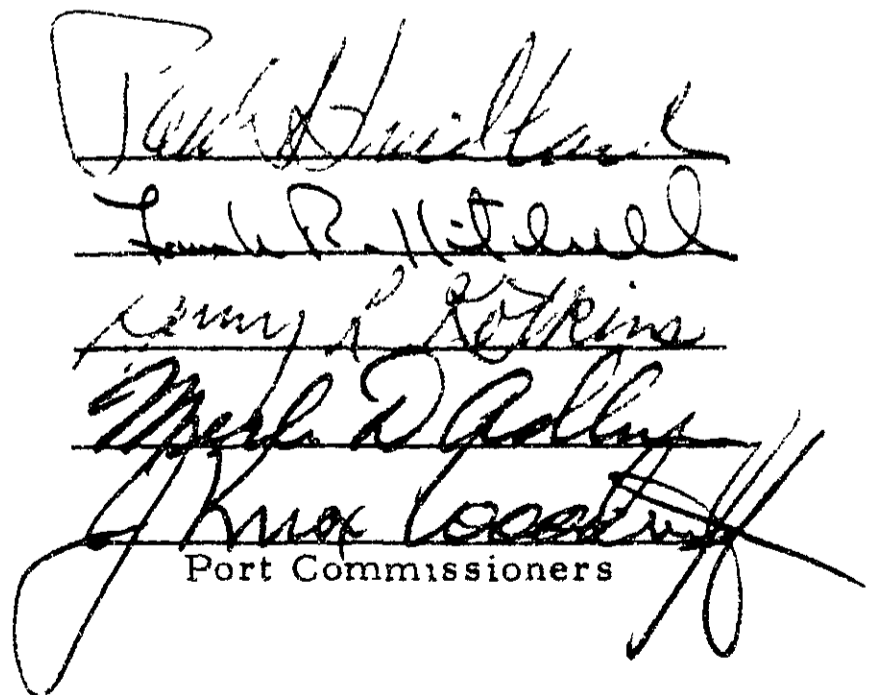 Paul S Friedland
Frank R. Kitchell
Henry L Kotkins
Merle D Adlum
J Knox Woodruff
Port Commissioners